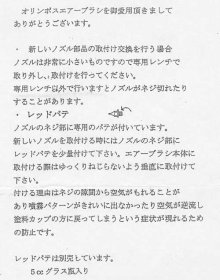 オリンポスエアーブラシを御愛用頂きまして
ありがとうございます。
・　新しいノズル部品の取付け交換を行う場合
ノズルは非常に小さいものですので専用レンチで
取り外し、取付けを行ってください。
専用レンチ以外で行いますとノズルがネジ切れたり
することがあります。
・　レッドパテ
ノズルのネジ部に専用のパテが付いています。
新しいノズルを取付ける時にはノズルのネジ部に
レッドパテを少量付けて下さい。エアーブラシ本体に
取付ける際はゆっくりねじらないよう垂直に取付けて
下さい。
付ける理由はネジの隙間から空気がもれることが
あり噴霧パターンがきれいに出なかったり空気が逆流し
塗料カップの方に戻ってしまうという症状が現れるため
の防止です。
レッドパテは別売しています。
５ｃｃグラス瓶入り